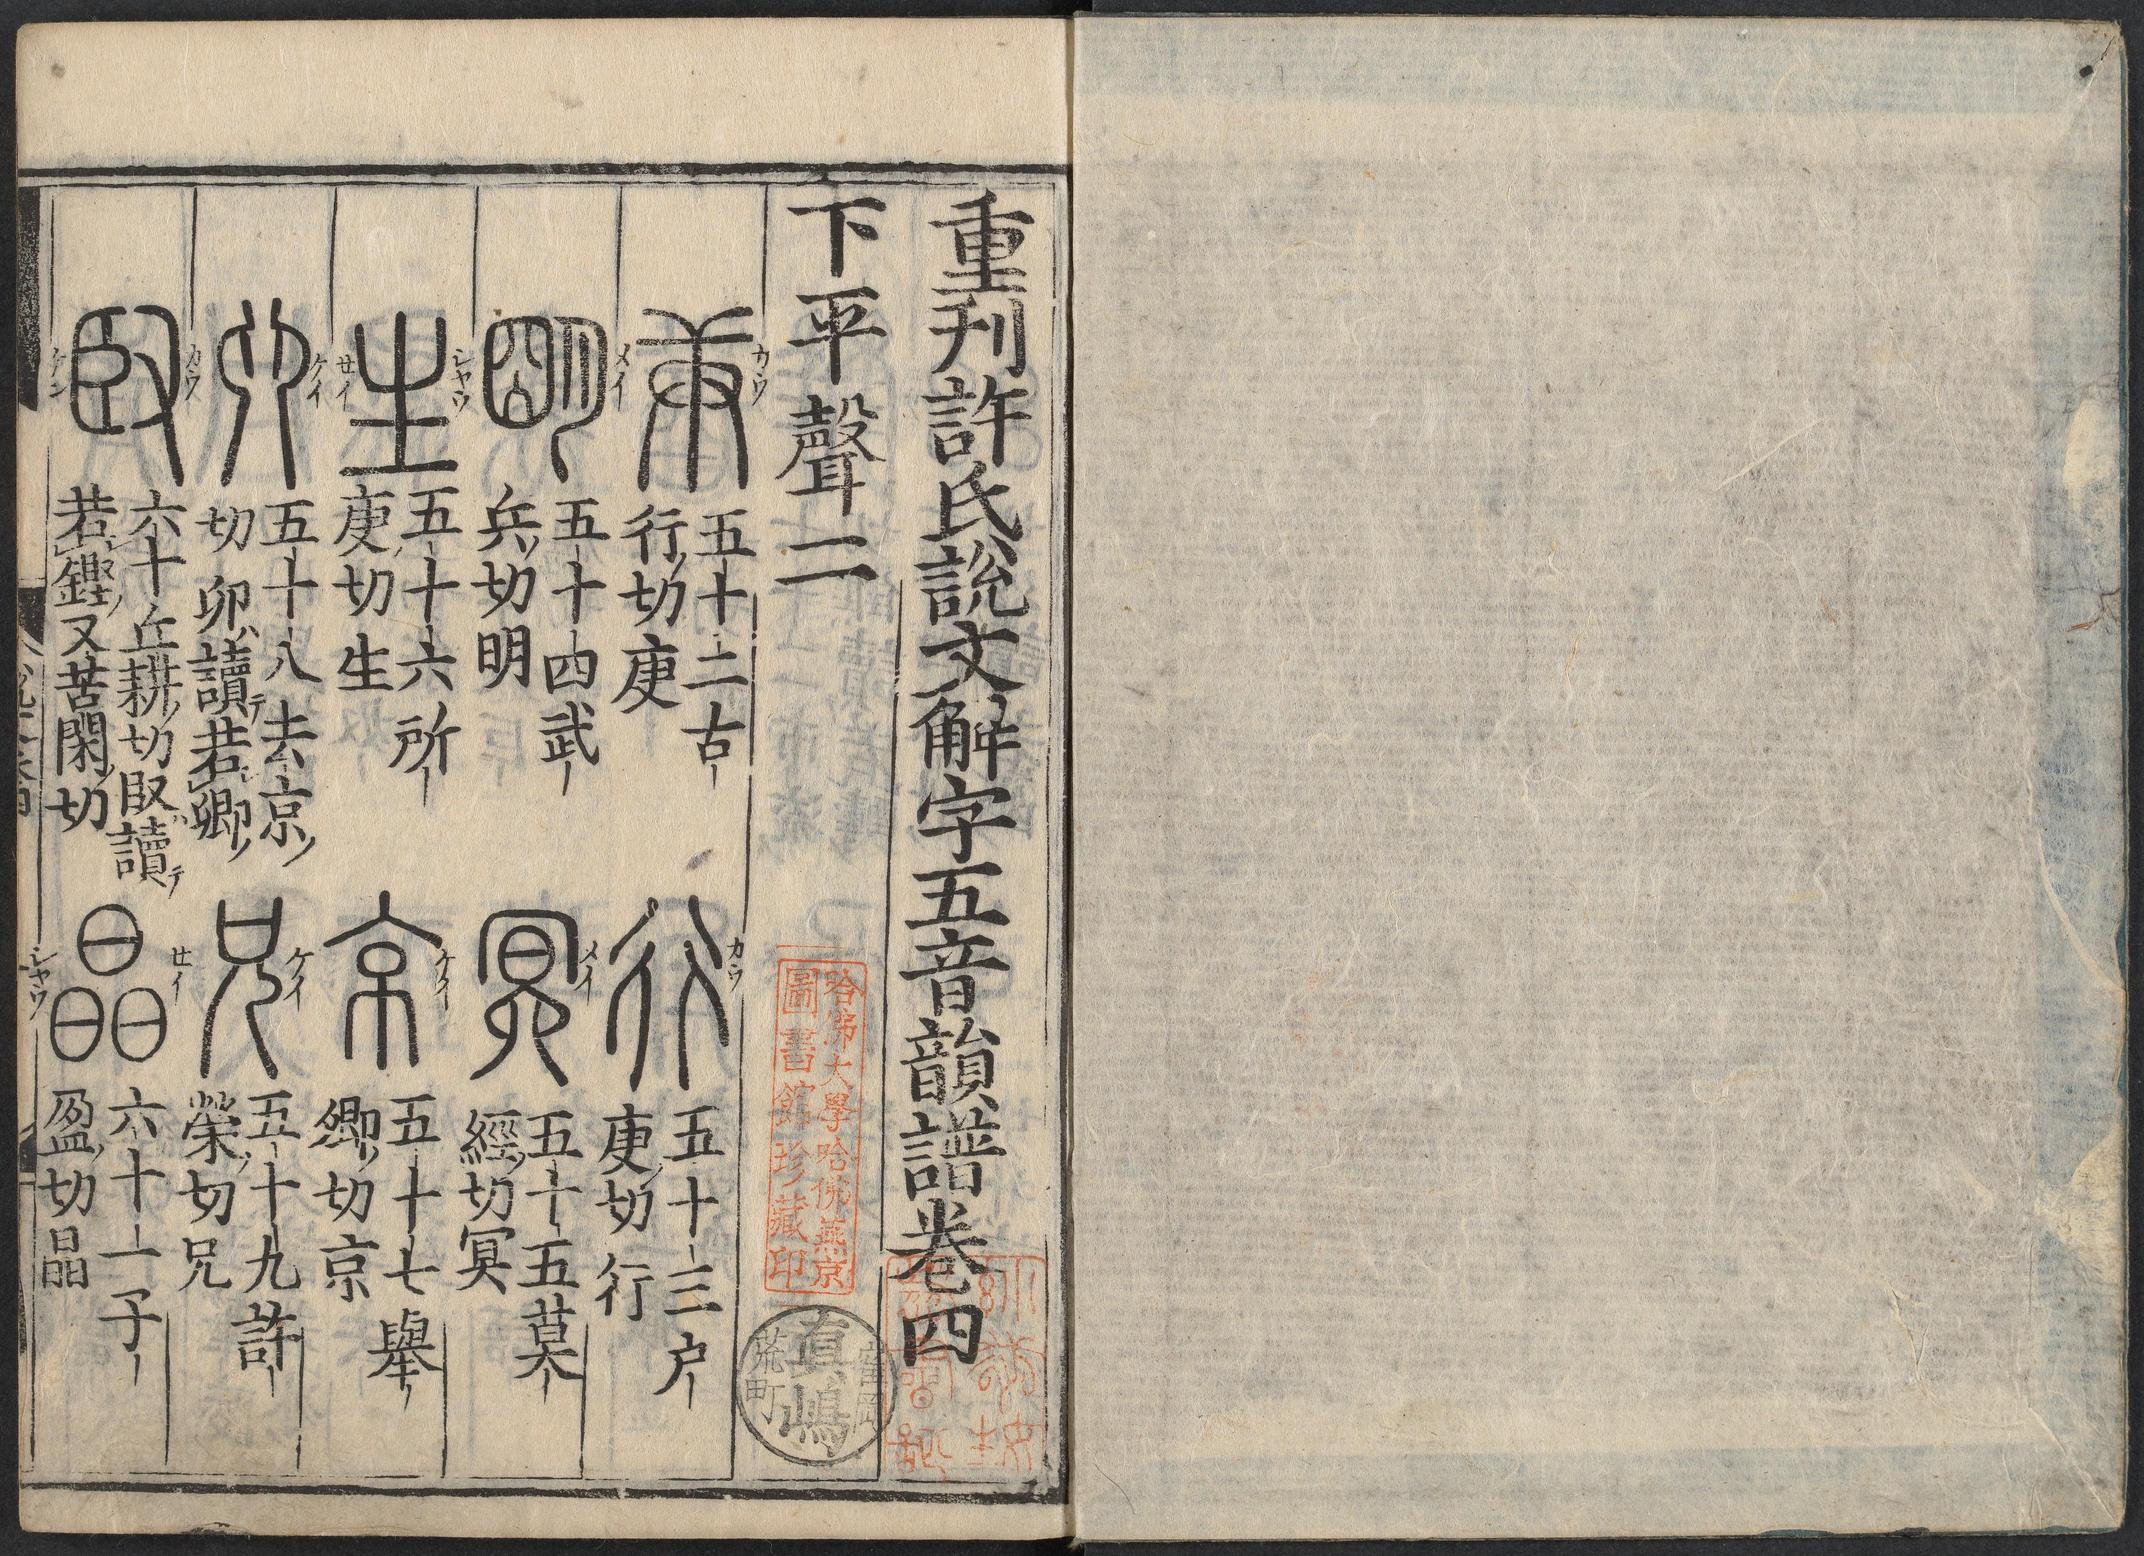 重刊許氏說文解字五音韻譜卷四
下平聲二
庚 五十二古行切庚
カウ
行 五十三户庚切行
カウ
明 五十四武兵切明
メイ
冥 五十五莫經切冥
メイ
生 五十六所庚切生
シヤウ セイ
京 五十七舉卿切京
ケイ
五十八去京切卯讀若卿
ケイ
兄 五十九許榮切兄
ケイ
臤 六十丘耕切臤讀若鏗又苦閑切
カウ ケン
晶 六十一子盈切晶
セイ シヤウ
哈佛大學哈佛燕京
圖書館珍藏印
真嶋
荒町